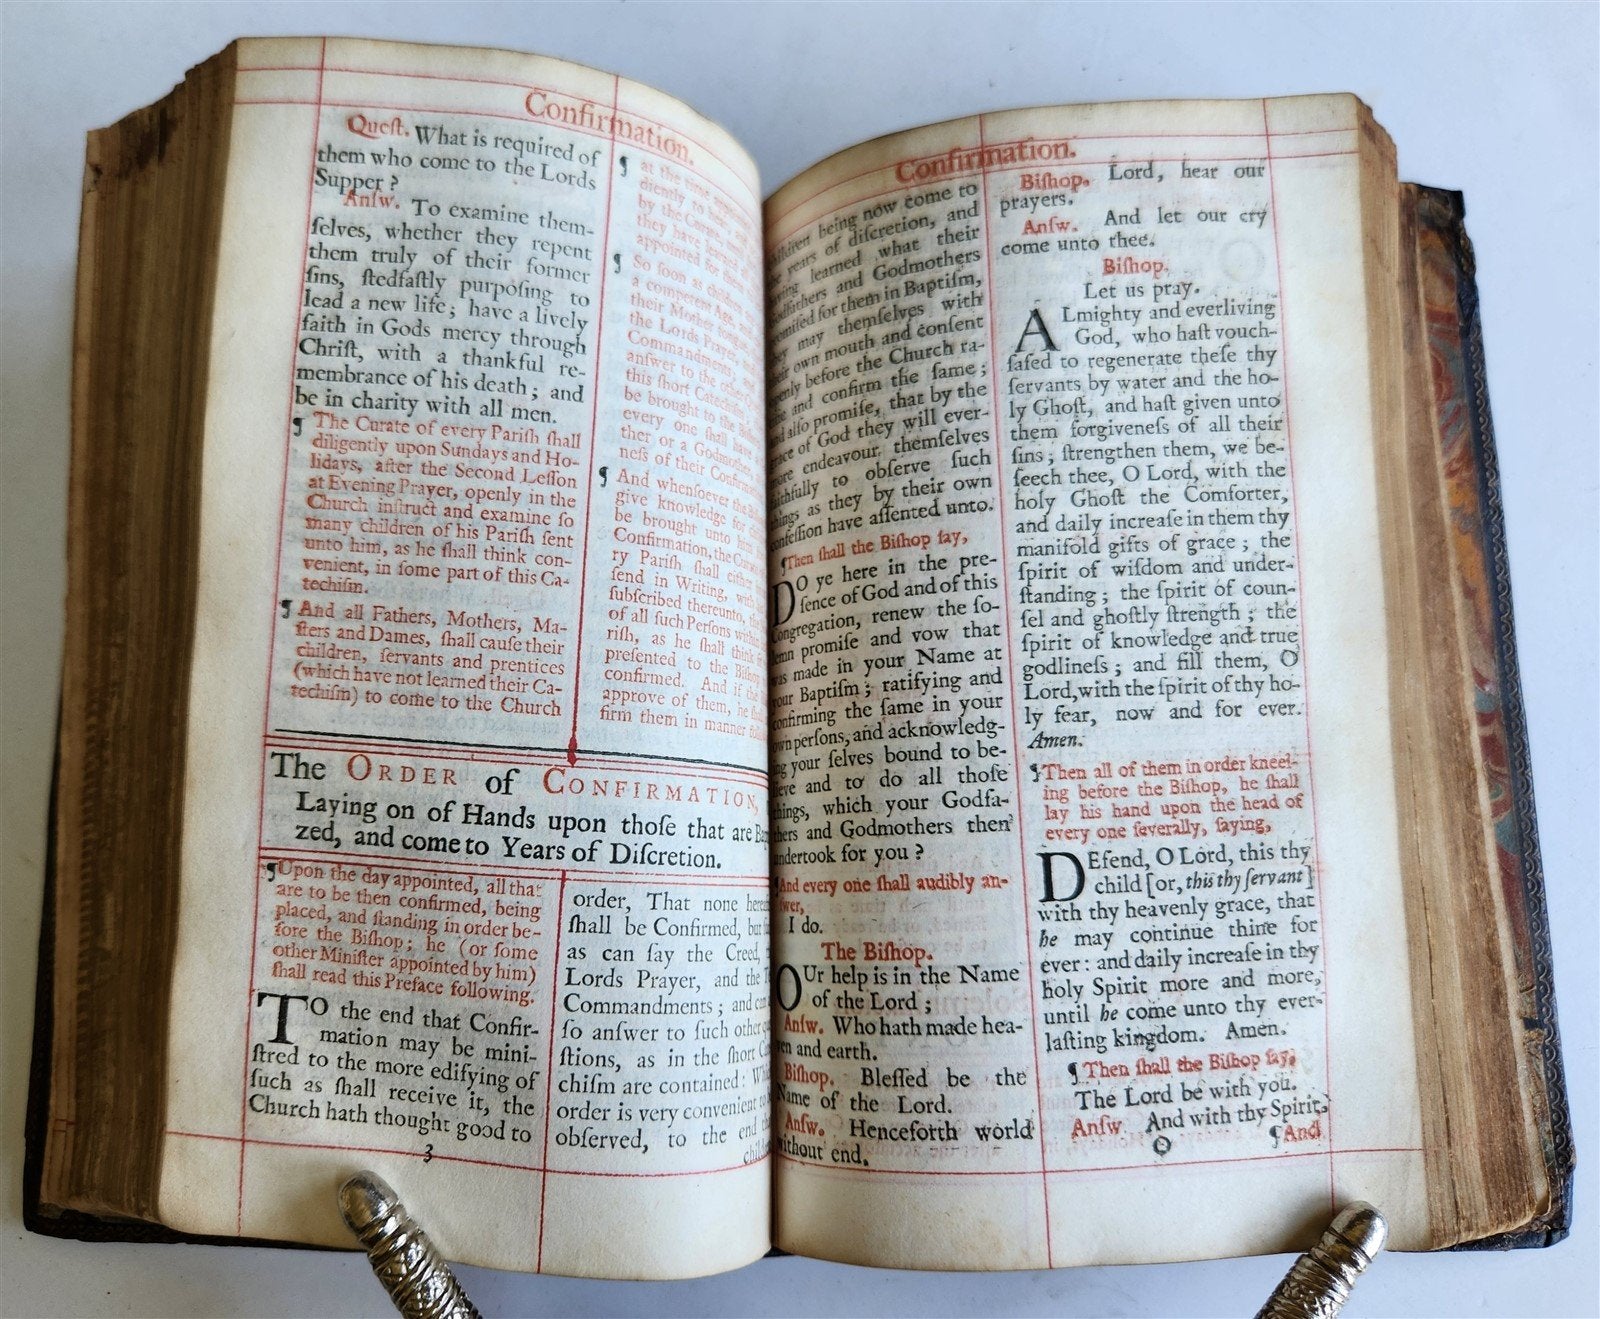 Confirmation.
Queſt. What is required of
them who come to the Lords
Supper ?
Anſw. To examine them-
ſelves, whether they repent
them truly of their former
ſins, ſtedfaſtly purpoſing to
lead a new life; have a lively
faith in Gods mercy through
Chriſt, with a thankful re-
membrance of his death; and
be in charity with all men.
¶ The Curate of every Pariſh ſhall
diligently upon Sundays and Ho-
lidays, after the Second Leſſon
at Evening Prayer, openly in the
Church inſtruct and examine ſo
many children of his Pariſh ſent
unto him, as he ſhall think con-
venient, in ſome part of this Ca-
techiſm.
¶ And all Fathers, Mothers, Ma-
ſters and Dames, ſhall cauſe their
children, ſervants and prentices
(which have not learned their Ca-
techiſm) to come to the Church
¶ at the time
diently to
by the Curate,
they have learned
appointed for them
¶ So ſoon as children
a competent Age,
their Mother tongue,
the Lords Prayer,
Commandments;
anſwer to the other
this ſhort Catechiſm
be brought to the
every one ſhall have
ther or a Godmother,
neſs of their Confirm
¶ And whenſoever the
give knowledge for
be brought unto him
Confirmation, the
ry Pariſh ſhall either
ſend in Writing, with
ſubſcribed thereunto,
of all ſuch Perſons
riſh, as he ſhall think
preſented to the
confirmed. And if the
approve of them, he
firm them in manner
The ORDER of CONFIRMATION,
Laying on of Hands upon thoſe that are
zed, and come to Years of Diſcretion.
¶Upon the day appointed, all that
are to be then confirmed, being
placed, and ſtanding in order be-
fore the Biſhop; he (or ſome
other Miniſter appointed by him)
ſhall read this Preface following.
TO the end that Confir-
mation may be mini-
ſtred to the more edifying of
ſuch as ſhall receive it, the
Church hath thought good to
order, That none
ſhall be Confirmed, but
as can ſay the Creed,
Lords Prayer, and the
Commandments; and
ſo anſwer to ſuch other
ſtions, as in the ſhort
chiſm are contained:
order is very convenient
obſerved, to the end
3
Confirmation.
being now come to
years of diſcretion, and
learned what their
and Godmothers
for them in Baptiſm,
may themſelves with
own mouth and conſent
before the Church ra-
and confirm the ſame;
alſo promiſe, that by the
of God they will ever-
more endeavour themſelves
faithfully to obſerve ſuch
things as they by their own
confeſſion have aſſented unto.
¶Then ſhall the Biſhop ſay,
DO ye here in the pre-
ſence of God and of this
Congregation, renew the ſo-
lemn promiſe and vow that
was made in your Name at
your Baptiſm; ratifying and
confirming the ſame in your
own perſons, and acknowledg-
ing your ſelves bound to be-
lieve and to do all thoſe
things, which your Godfa-
thers and Godmothers then
undertook for you ?
And every one ſhall audibly an-
ſwer,
I do.
The Biſhop.
OUr help is in the Name
of the Lord;
Anſw. Who hath made hea-
ven and earth.
Biſhop. Bleſſed be the
Name of the Lord.
Anſw. Henceforth world
without end.
Biſhop. Lord, hear our
prayers.
Anſw. And let our cry
come unto thee.
Biſhop.
Let us pray.
ALmighty and everliving
God, who haſt vouch-
ſafed to regenerate theſe thy
ſervants by water and the ho-
ly Ghoſt, and haſt given unto
them forgiveneſs of all their
ſins; ſtrengthen them, we be-
ſeech thee, O Lord, with the
holy Ghoſt the Comforter,
and daily increaſe in them thy
manifold gifts of grace; the
ſpirit of wiſdom and under-
ſtanding; the ſpirit of coun-
ſel and ghoſtly ſtrength; the
ſpirit of knowledge and true
godlineſs; and fill them, O
Lord, with the ſpirit of thy ho-
ly fear, now and for ever.
Amen.
¶Then all of them in order kneel-
ing before the Biſhop, he ſhall
lay his hand upon the head of
every one ſeverally, ſaying,
DEfend, O Lord, this thy
child [or, this thy ſervant]
with thy heavenly grace, that
he may continue thine for
ever: and daily increaſe in thy
holy Spirit more and more,
until he come unto thy ever-
laſting kingdom. Amen.
¶ Then ſhall the Biſhop ſay,
The Lord be with you.
Anſw And with thy Spirit.
¶And